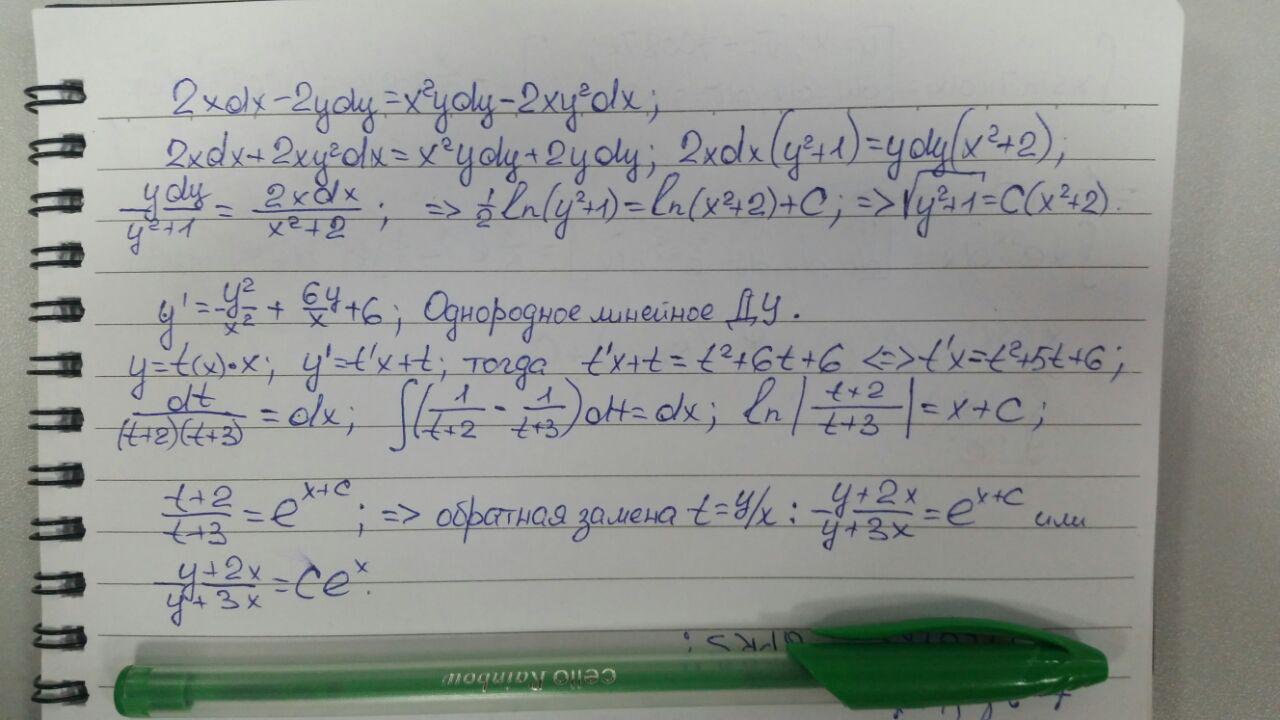 2xdx-2ydy=x²ydy-2xy²dx;
2xdx+2xy²dx=x²ydy+2ydy; 2xdx(y²+1)=ydy(x²+2);
ydy/(y²+1) = 2xdx/(x²+2); => 1/2 ln(y²+1)=ln(x²+2)+C; => √(y²+1)=C(x²+2).
y'=y²/x² + 6y/x +6; Однородное линейное ДУ.
y=t(x)·x; y'=t'x+t; тогда t'x+t=t²+6t+6 <=> t'x=t²+5t+6;
dt/((t+2)(t+3)) = dx; ∫(1/(t+2) - 1/(t+3))dt=dx; ln|(t+2)/(t+3)|=x+C;
(t+2)/(t+3)=e^(x+c); => обратная замена t=y/x: (y+2x)/(y+3x)=e^(x+c) или
(y+2x)/(y+3x)=Ce^x.
cello Rainbow